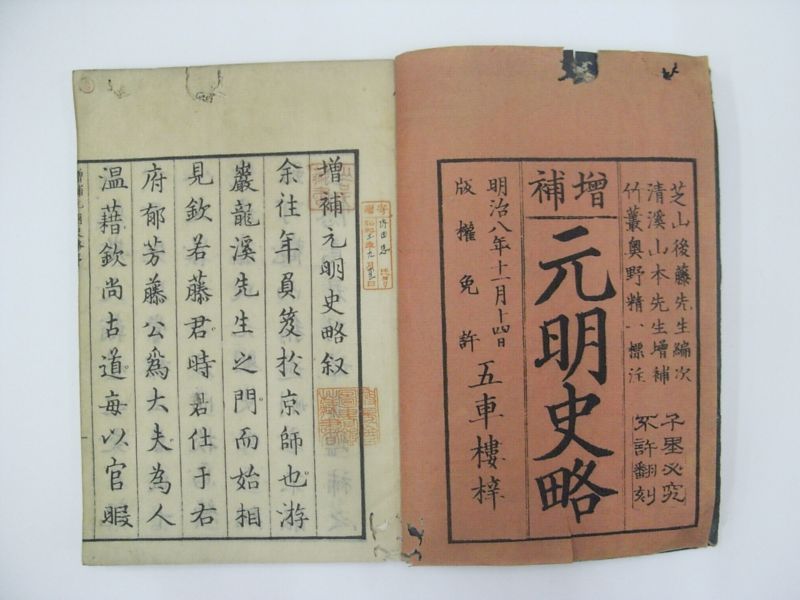 芝山後藤先生編次
清溪山本先生增補
竹叢奥野精一標注
不許翻刻
千里必究
增補
元明史略
明治八年十二月十四日
版權免許
五車樓梓
增補元明史略叙
余往年負笈於京師也游
巖龍溪先生之門而始相
見欽若藤君時君仕于右
府郁芳藤公爲大夫為人
温藉欽尚古道每以官暇